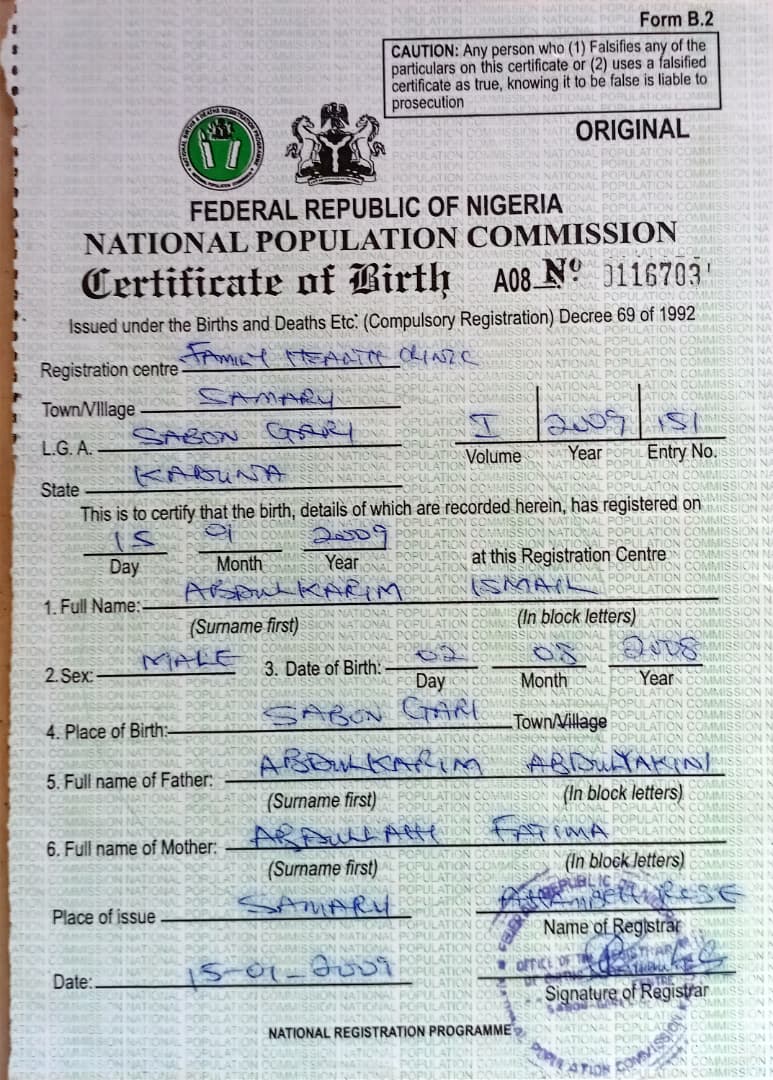 Form B.2
CAUTION: Any person who (1) Falsifies any of the
particulars on this certificate or (2) uses a falsified
certificate as true, knowing it to be false is liable to
prosecution
ORIGINAL
FEDERAL REPUBLIC OF NIGERIA
NATIONAL POPULATION COMMISSION
Certificate of Birth A08 Nº 0116703
Issued under the Births and Deaths Etc. (Compulsory Registration) Decree 69 of 1992
Registration centre FAMILY HEALTH CLINIC
Town/Village SAMARU
L.G.A. SABON GARI
I 2009 151
Volume Year Entry No.
State KADUNA
This is to certify that the birth, details of which are recorded herein, has registered on
15 01 2009 at this Registration Centre
Day Month Year
1. Full Name: ABDULKARIM ISMAIL
(Surname first) (In block letters)
2. Sex: MALE 3. Date of Birth: 02 08 2008
Day Month Year
4. Place of Birth: SABON GARI Town/Village
5. Full name of Father: ABDULKARIM
(Surname first) (In block letters)
6. Full name of Mother: ABDULLAHI FATIMA
(Surname first) (In block letters)
Place of issue SAMARU ROSE
Name of Registrar
Date: 15-01-2009
Signature of Registrar
NATIONAL REGISTRATION PROGRAMME